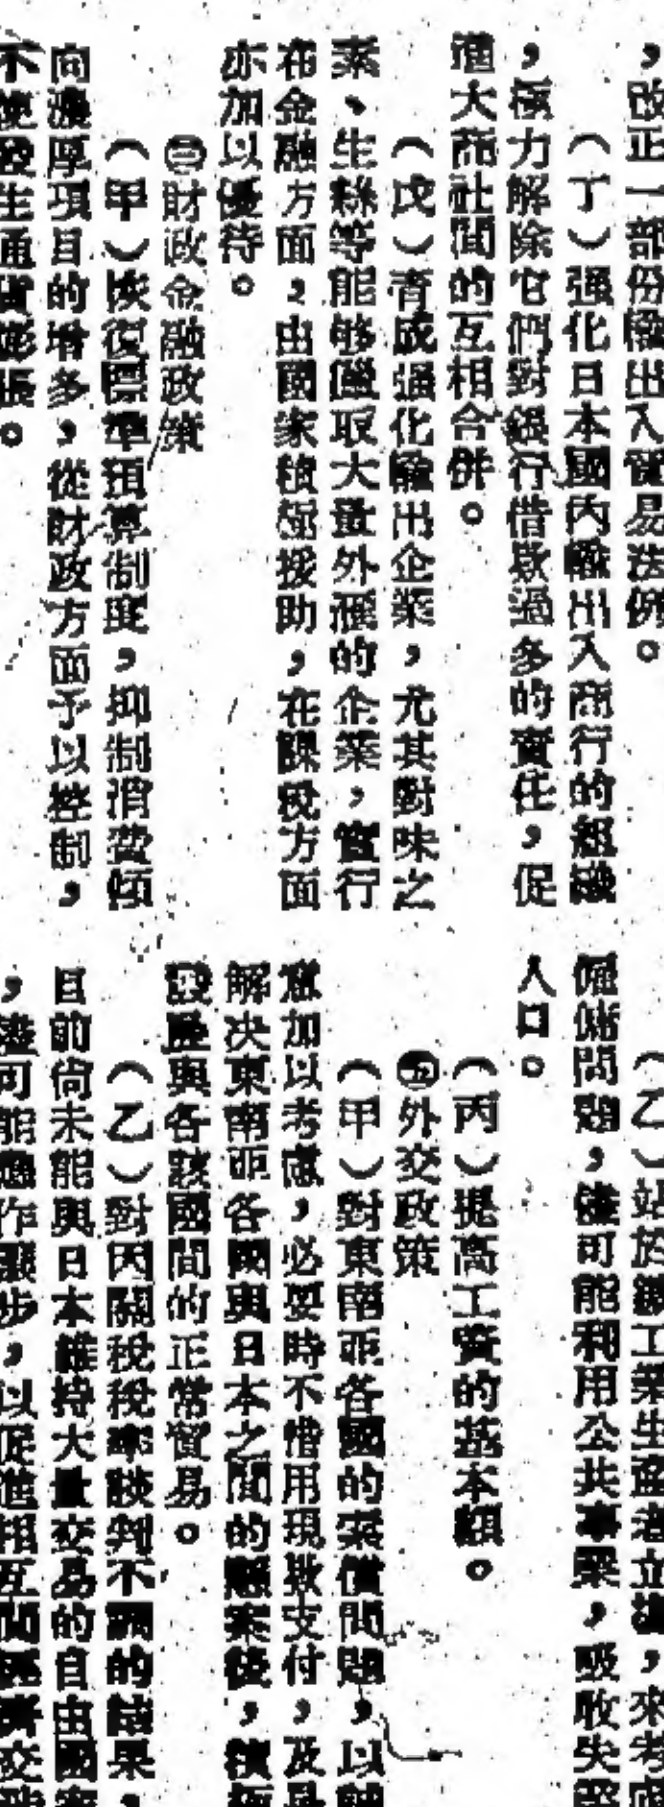 ，改正一部份輸出入貿易法例。
（丁）强化日本國內輸出入商行的組織
，極力解除它們對銀行借欵過多的責任，促
進大商社間的互相合併。
（戊）育成强化輸出企業，尤其對味之
素、生絲等能够獲取大量外滙的企業，實行
在金融方面，由國家積極援助，在課稅方面
亦加以優待。
㊂財政金融政策
（甲）恢復標準預算制度，抑制消費傾
向濃厚項目的增多，從財政方面予以控制，
不使發生通貨膨脹。
（乙）站於鑛工業生產者立塲，來考慮
僱傭問題，儘可能利用公共事業，吸收失業
人口。
（丙）提高工資的基本額。
㊄外交政策
（甲）對東南亞各國的索償問題，以
意加以考慮，必要時不惜用現欵支付，及早
解决東南亞各國與日本之間的懸案後，積極
設歷與各該國間的正常貿易。
（乙）對因關稅稅率談判不調的結果，
目前尙未能與日本維持大量交易的自由國家
，盡可能作讓步，以促進相互間經濟交